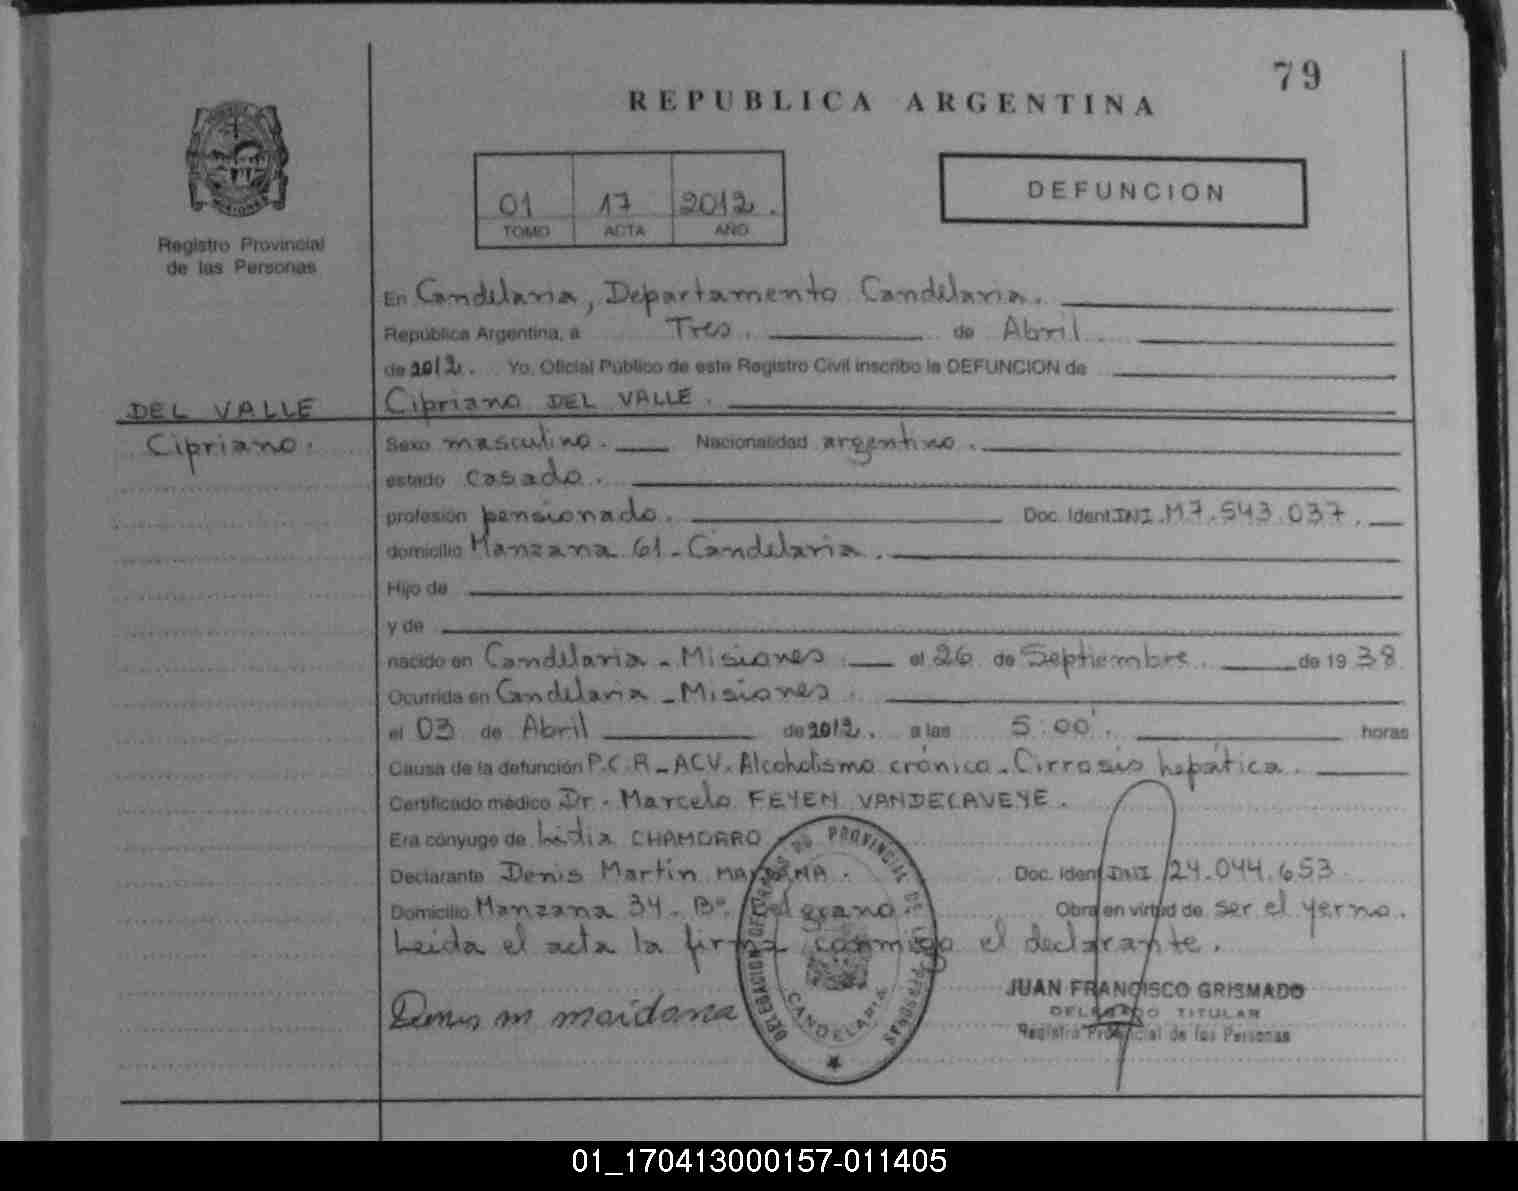 79
REPUBLICA ARGENTINA
01 17 2012.
TOMO ACTA AÑO
DEFUNCION
MISIONES
Registro Provincial
de las Personas
En Candelaria, Departamento Candelaria.
República Argentina, a Tres. de Abril
de 2012. Yo, Oficial Público de este Registro Civil inscribo la DEFUNCION de
DEL VALLE
Cipriano DEL VALLE.
Cipriano.
Sexo masculino. Nacionalidad argentino.
estado casado.
profesión pensionado. Doc. Ident. DNI. M7.543.037.
domicilio Manzana 61 - Candelaria.
Hijo de
y de
nacido en Candelaria - Misiones. el 26 de Septiembre. de 19 38
Ocurrida en Candelaria - Misiones.
el 03 de Abril de 2012. a las 5:00'. horas
Causa de la defunción P.C.R - ACV. Alcoholismo crónico - Cirrosis hepática.
Certificado médico Dr. Marcelo FEYEN VANDECAVEYE.
Era cónyuge de Lidia CHAMORRO
Declarante Denis Martín MAIDANA. Doc. Ident DNI 24.044.653
Domicilio Manzana 34 - Bº. Belgrano. Obra en virtud de ser el yerno.
Leida el acta la firma conmigo el declarante.
Denis m maidana
CANDELARIA
JUAN FRANCISCO GRISMADO
DELEGADO TITULAR
Registro Provincial de las Personas
01_170413000157-011405